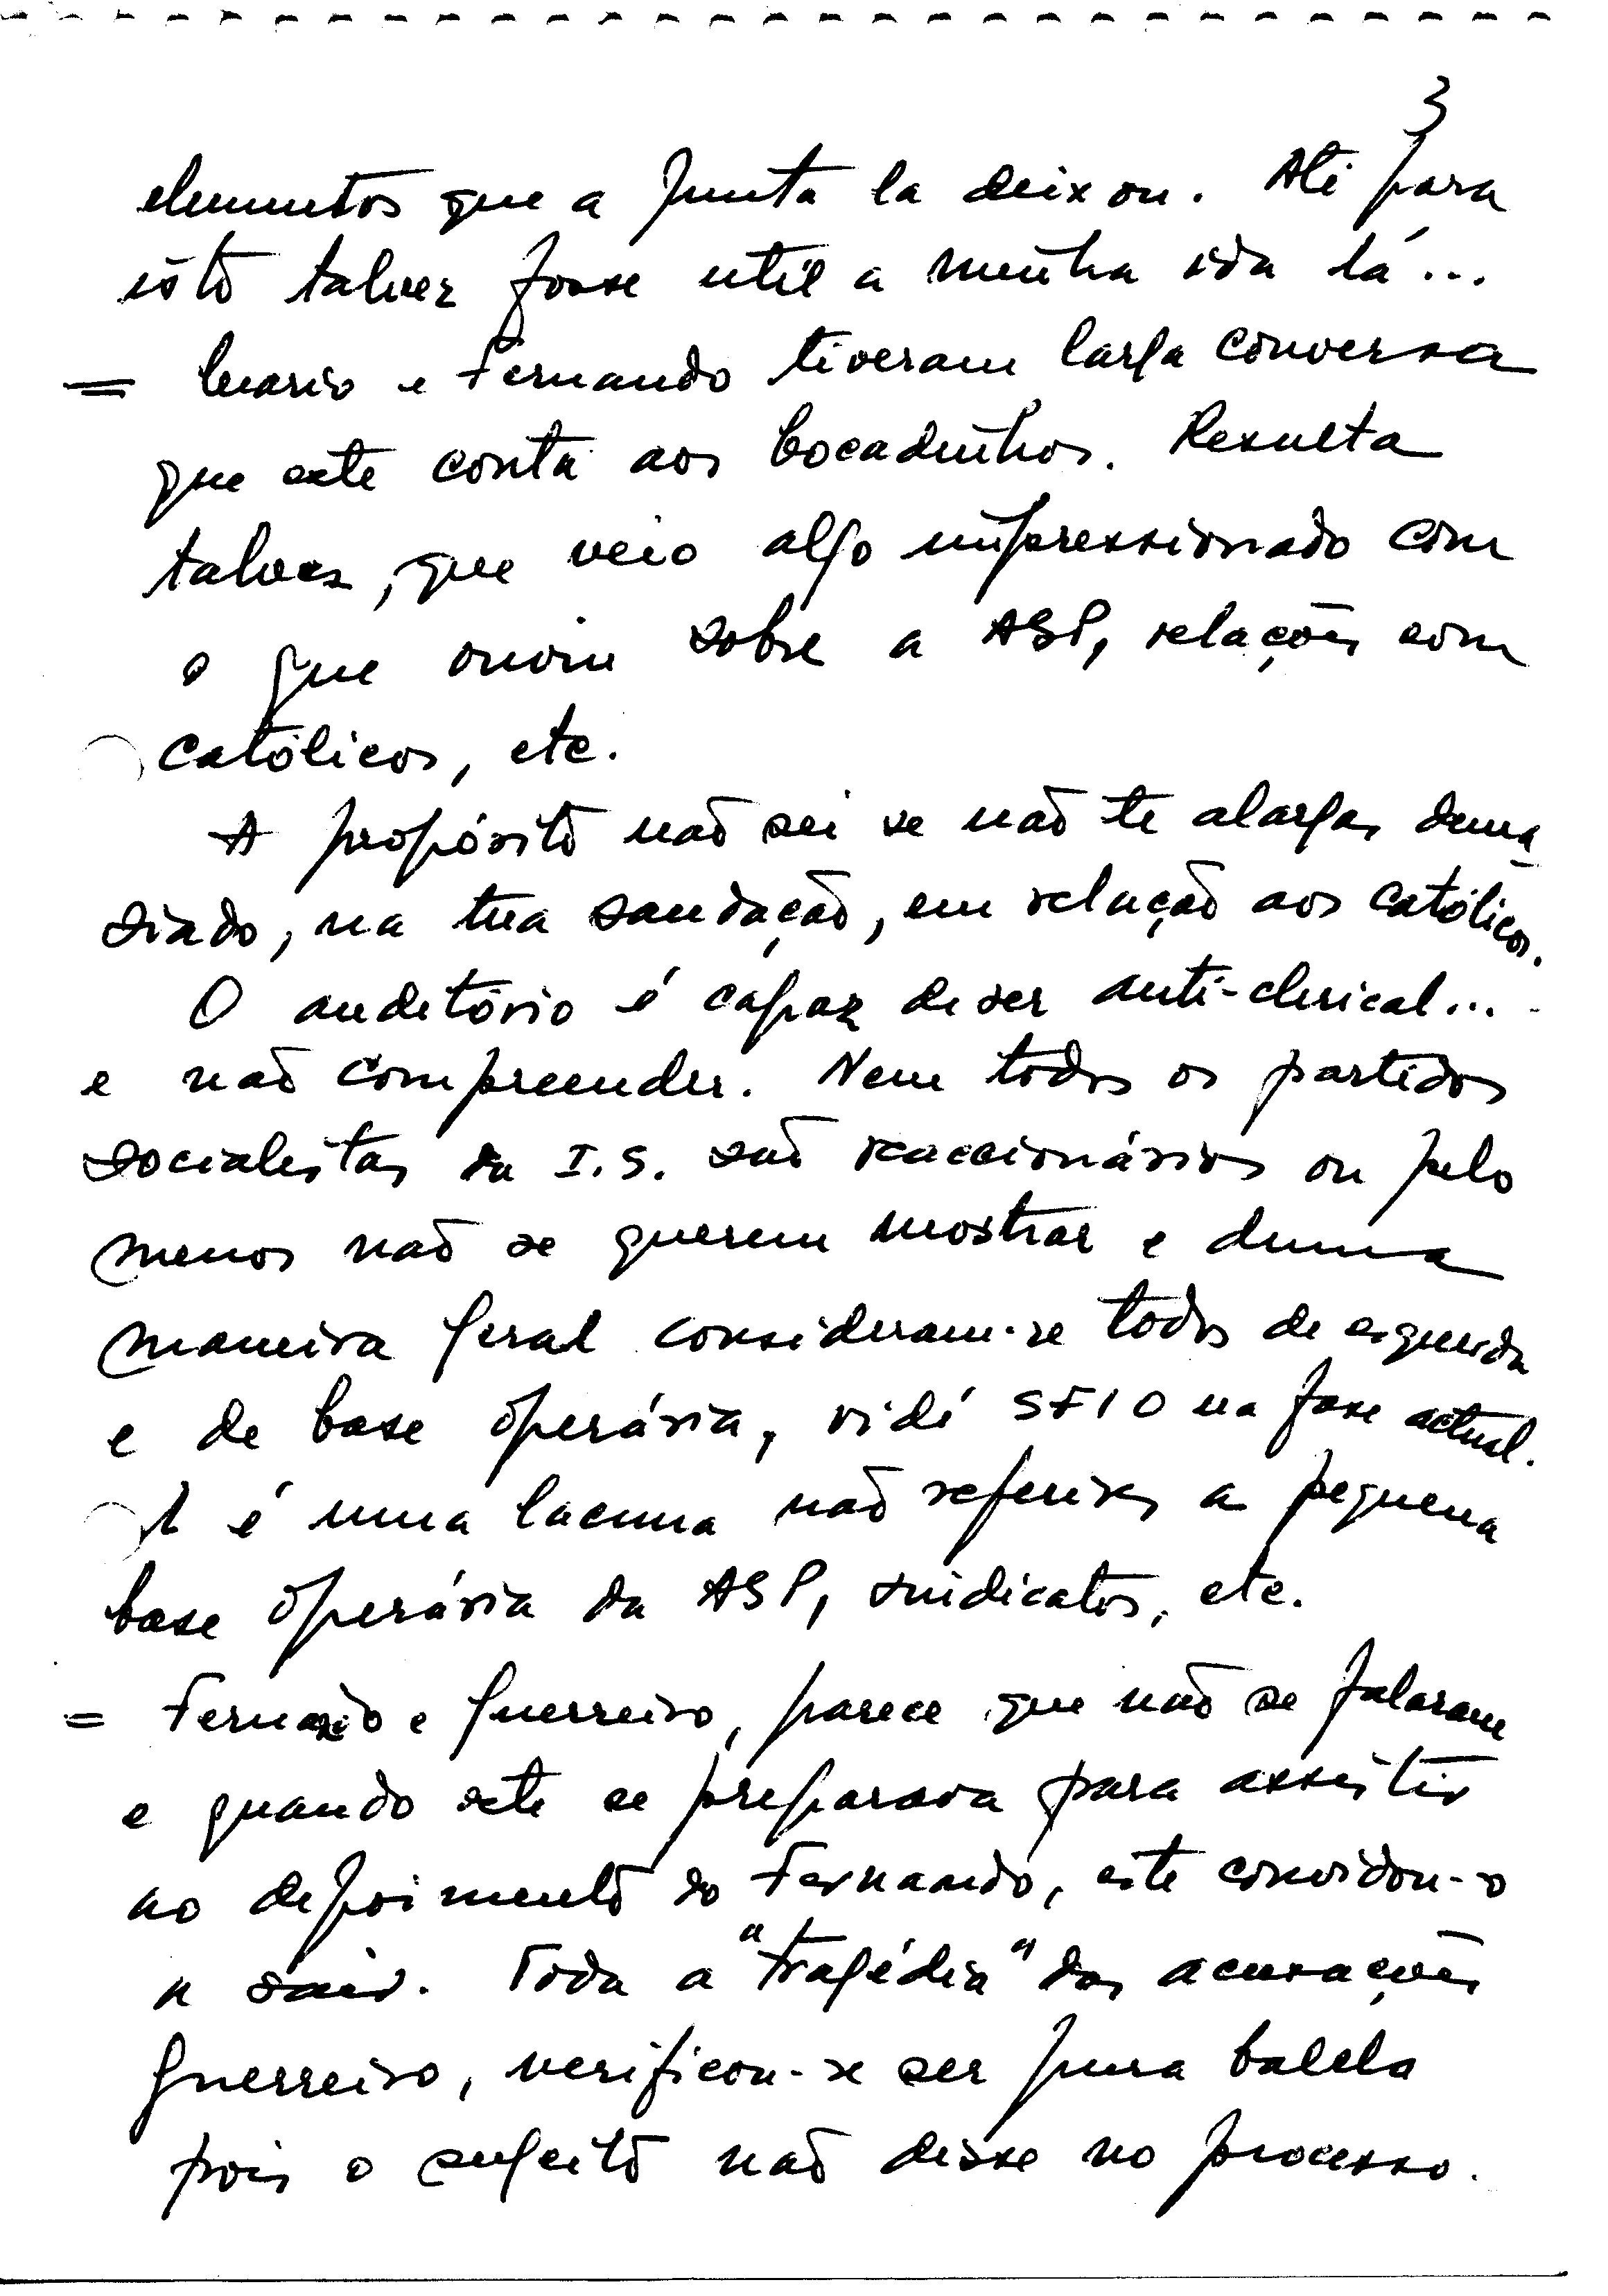 3
elementos que a Junta la deixou. Até para
isto talvez fosse util a minha ida lá...
= Mario e Fernando tiveram larga conversa
que este conta aos bocadinhos. Resulta
talvez, que veio algo impressionado com
o que ouviu sobre a ASP, relações com
católicos, etc.
A propósito não sei se não te alargas dema-
siado, na tua saudação, em relação aos católicos.
O auditório é capaz de ser anti-clerical...
e não compreender. Nem todos os partidos
socialistas da I.S. são reaccionários ou pelo
menos não se querem mostrar e duma
maneira geral consideram-se todos de esquerda
e de base operária, vidé SFIO na fase actual.
É uma lacuna não referires a pequena
base operária da ASP, sindicatos, etc.
= Fernando e Guerreiro, parece que não se falaram
e quando este se preparava para assistir
ao depoimento do Fernando, este convidou-o
a sair. Toda a "tragédia" das acusações
Guerreiro, verificou-se ser pura balela
pois o sujeito não disse no processo.